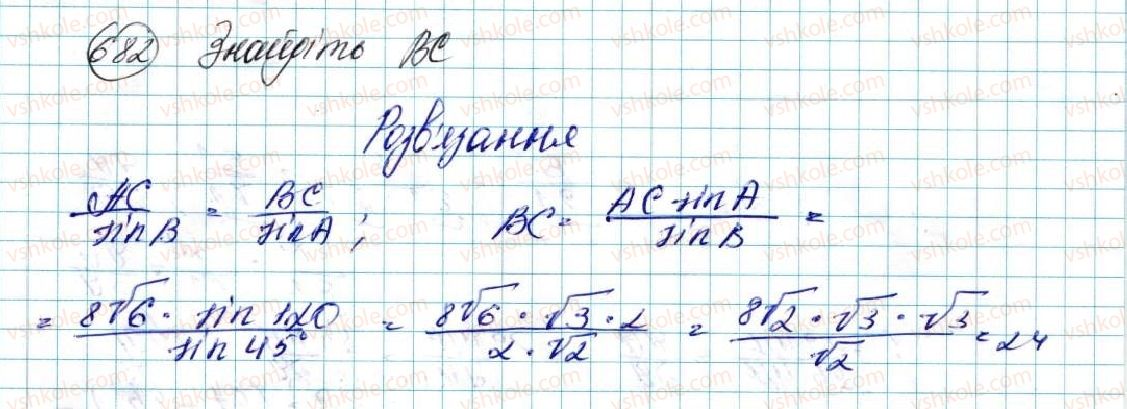 682 Знайдіть BC
Розв'язання
AC/sin B = BC/sin A; BC = AC·sin A/sin B =
= 8√6 · sin 120/sin 45° = 8√6 · √3 · 2/2 · √2 = 8√2 · √3 · √3/√2 = 24